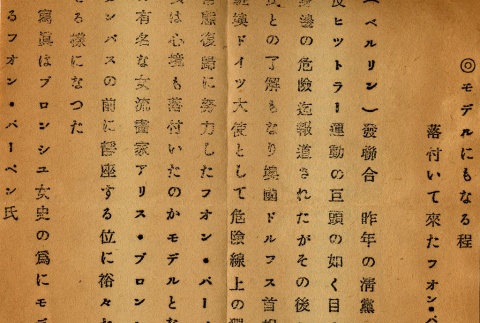 ◎モデルにもなる程
落付いて來たフオン・パ
(ベルリン)發聯合　昨年の淸黨
反ヒツトラー運動の巨頭の如く目
身邊の危險迄報道されたがその後
氏との了解もなり墺國ドルフス首相
駐墺ドイツ大使として危險線上の
態復歸に努力したフオン・パー
は心境も落付いたのかモデルとな
の有名な女流畫家アリス・ブロン
ンバスの前に端座する位に裕々
る樣になつた
寫眞はブロンシユ女史の爲にモデ
るフオン・パーペン氏